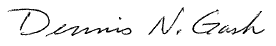 Dennis N. Gash